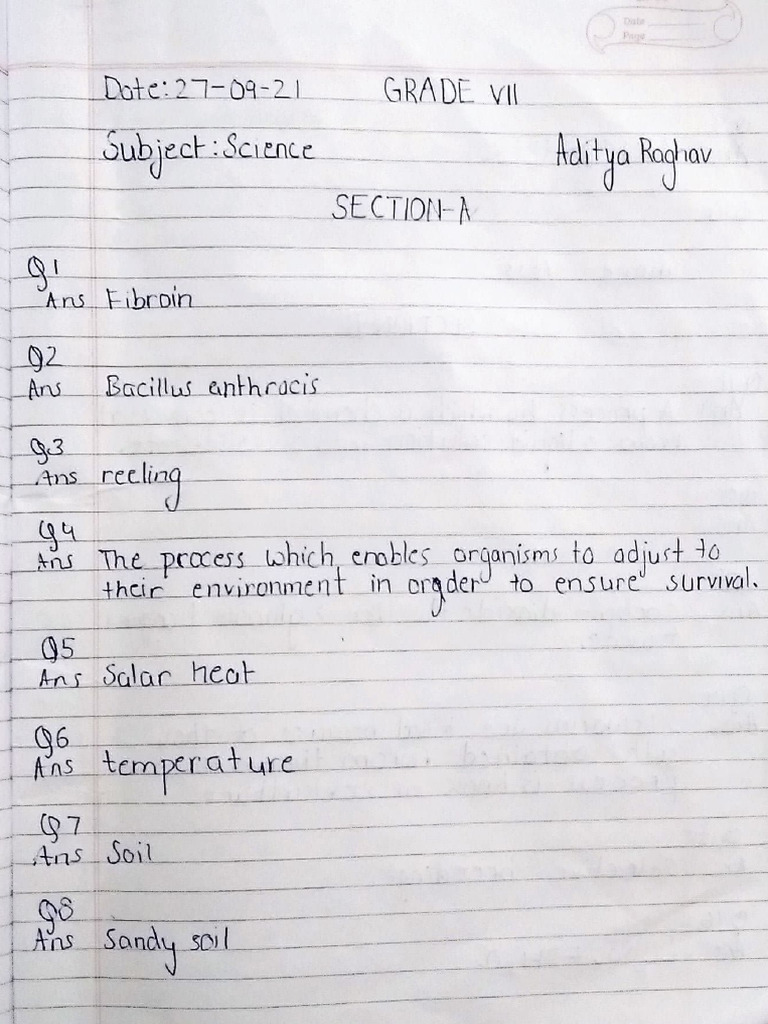 Date
Page
Date: 27-09-21 GRADE VII
Subject: Science Aditya Raghav
SECTION-A
Q1
Ans Fibroin
Q2
Ans Bacillus anthracis
Q3
Ans reeling
Q4
Ans The process which enables organisms to adjust to
their environment in orgder to ensure survival.
Q5
Ans Salar heat
Q6
Ans temperature
Q7
Ans Soil
Q8
Ans Sandy soil